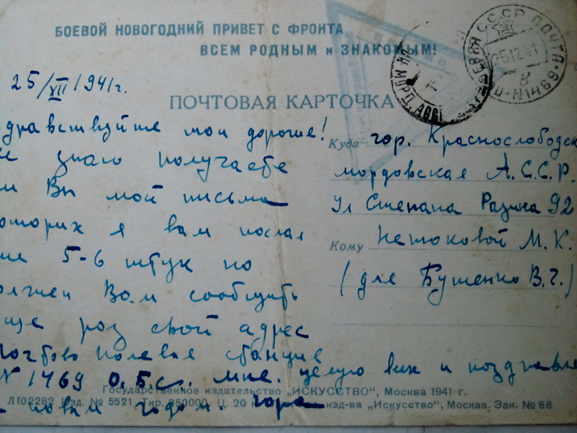 БОЕВОЙ НОВОГОДНИЙ ПРИВЕТ С ФРОНТА
ВСЕМ РОДНЫМ и ЗНАКОМЫМ!
25/XII 1941г.
ПОЧТОВАЯ КАРТОЧКА
дравствуйте мои дорогие!
не знаю получаете
ли Вы мои письма
которих я вам послал
уже 5-6 штук но
должен Вам сообщить
еще роз свой адрес
Почтово полевая станция
N 1769 О.Б.с. мне. целую вик и поздравля
с новим годом. гора
Куда гор. Краснослободск
мордовская А.С.С.Р.
Ул Степана Разина 92
Кому Нетоковой М.К.
(для Бутенко В.Г.)
СССР ПОЧТА
25.12.41
Государственное издательство „ИСКУССТВО", Москва 1941 г.
Л102282 Изд. № 5521 Тир. 350000 Ц. 20 изд-ва „Искусство", Москва. Зак. № 88